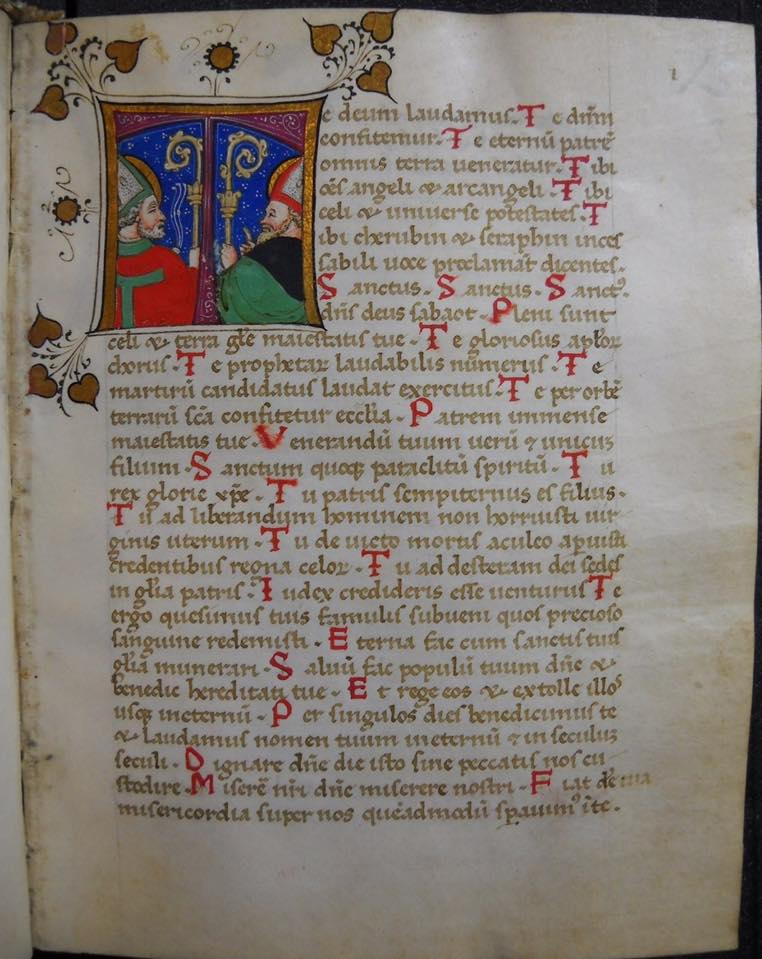 1
e deum laudamus. T e dñm
confitemur. T e eternũ patrẽ
omnis terra ueneratur. T ibi
oẽs angeli & arcangeli. T ibi
celi & uniuerse potestates. T
ibi cherubin & seraphin inces
sabili uoce proclamãt dicentes.
S anctus. S anctus. S anctꝰ.
dñs deus sabaot. P leni sunt
celi & terra glẽ maiestatis tue. T e gloriosus aplõꝝ
chorus. T e prophetaꝝ laudabilis nũmerus. T e
martirũ candidatus laudat exercitus. T e per orbẽ
terrarũ scã confitetur ecclĩa. P atrem immense
maiestatis tue. V enerandũ tuum uerũ & unicuz
filium. S anctum quoqꝫ paraclitũ spiritũ. T u
rex glorie xp̃e. T u patris sempiternus es filius.
T u ad liberandum hominem non horruisti uir
ginis uterum. T u deuicto mortis aculeo apuisti
credentibus regna celoꝝ. T u ad desteram dei sedes
in glĩa patris. I udex crederis esse uenturus T e
ergo quesumus tuis famulis subueni quos precioso
sanguine redemisti. E terna fac cum sanctis tuis
glĩa munerari. S aluũ fac populũ tuum dñe &
benedic hereditati tue. E t rege eos & extolle illoˢ
usqꝫ ineternũ. P er singulos dies benedicimus te
& laudamus nomen tuum ineternũ & in seculuz
seculi. D ignare dñe die isto sine peccatis nos cu
stodire. M iserẽ nr̃i dñe miserere nostri. F iat dñe
misericordia super nos queãdmodũ